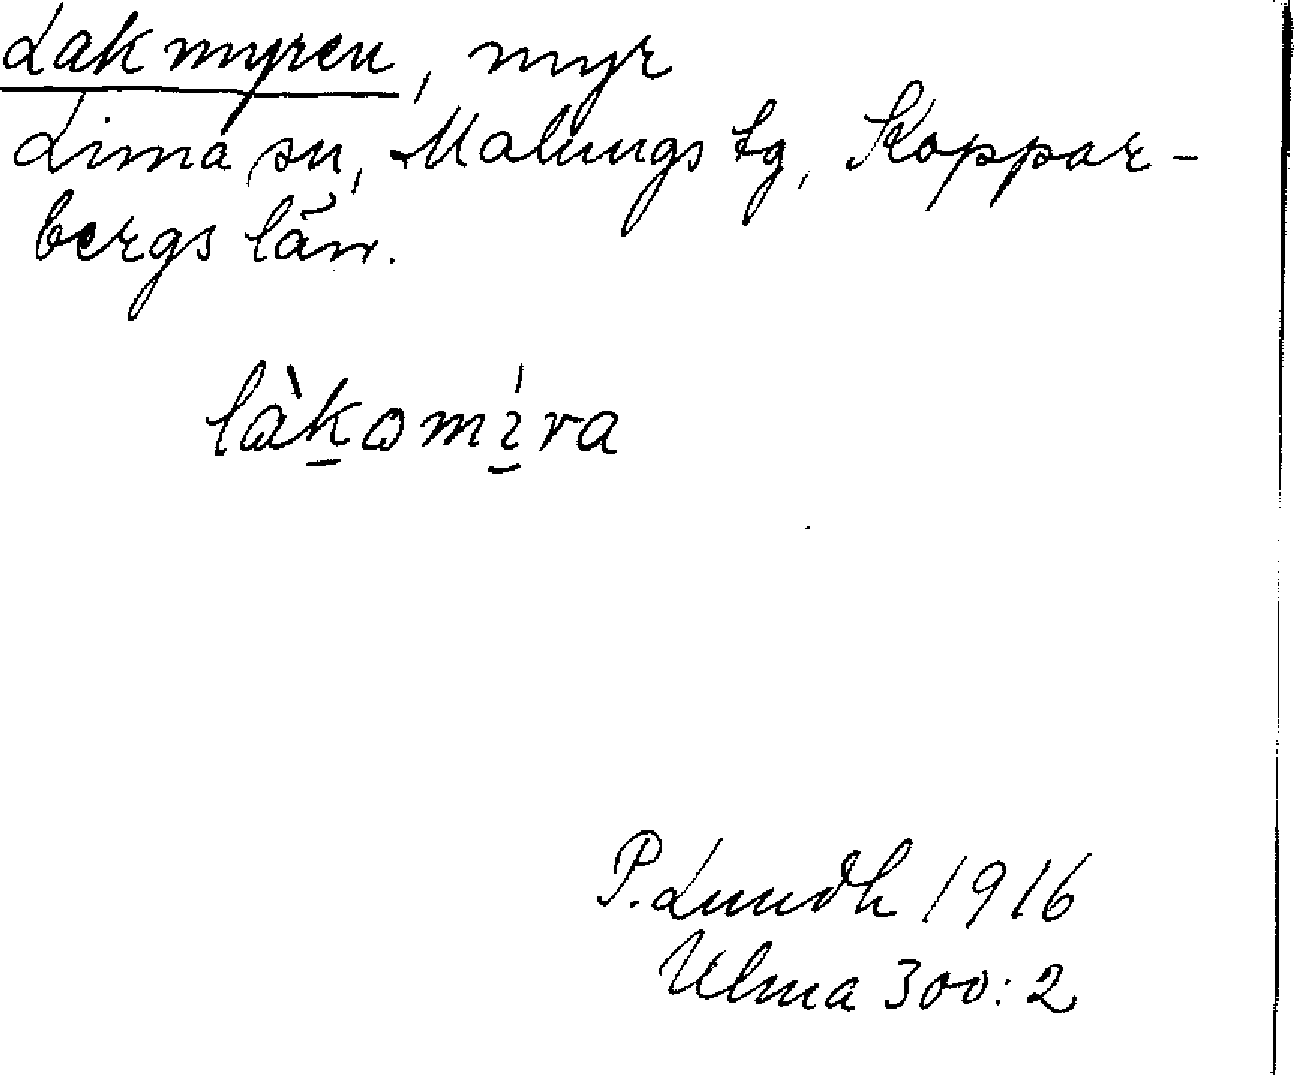 Lakmyren, myr
Lima sn, Malungs tg, Koppar-
bergs län.
làkomi̱ra
P. Lundh 1916
Ulma 300:2